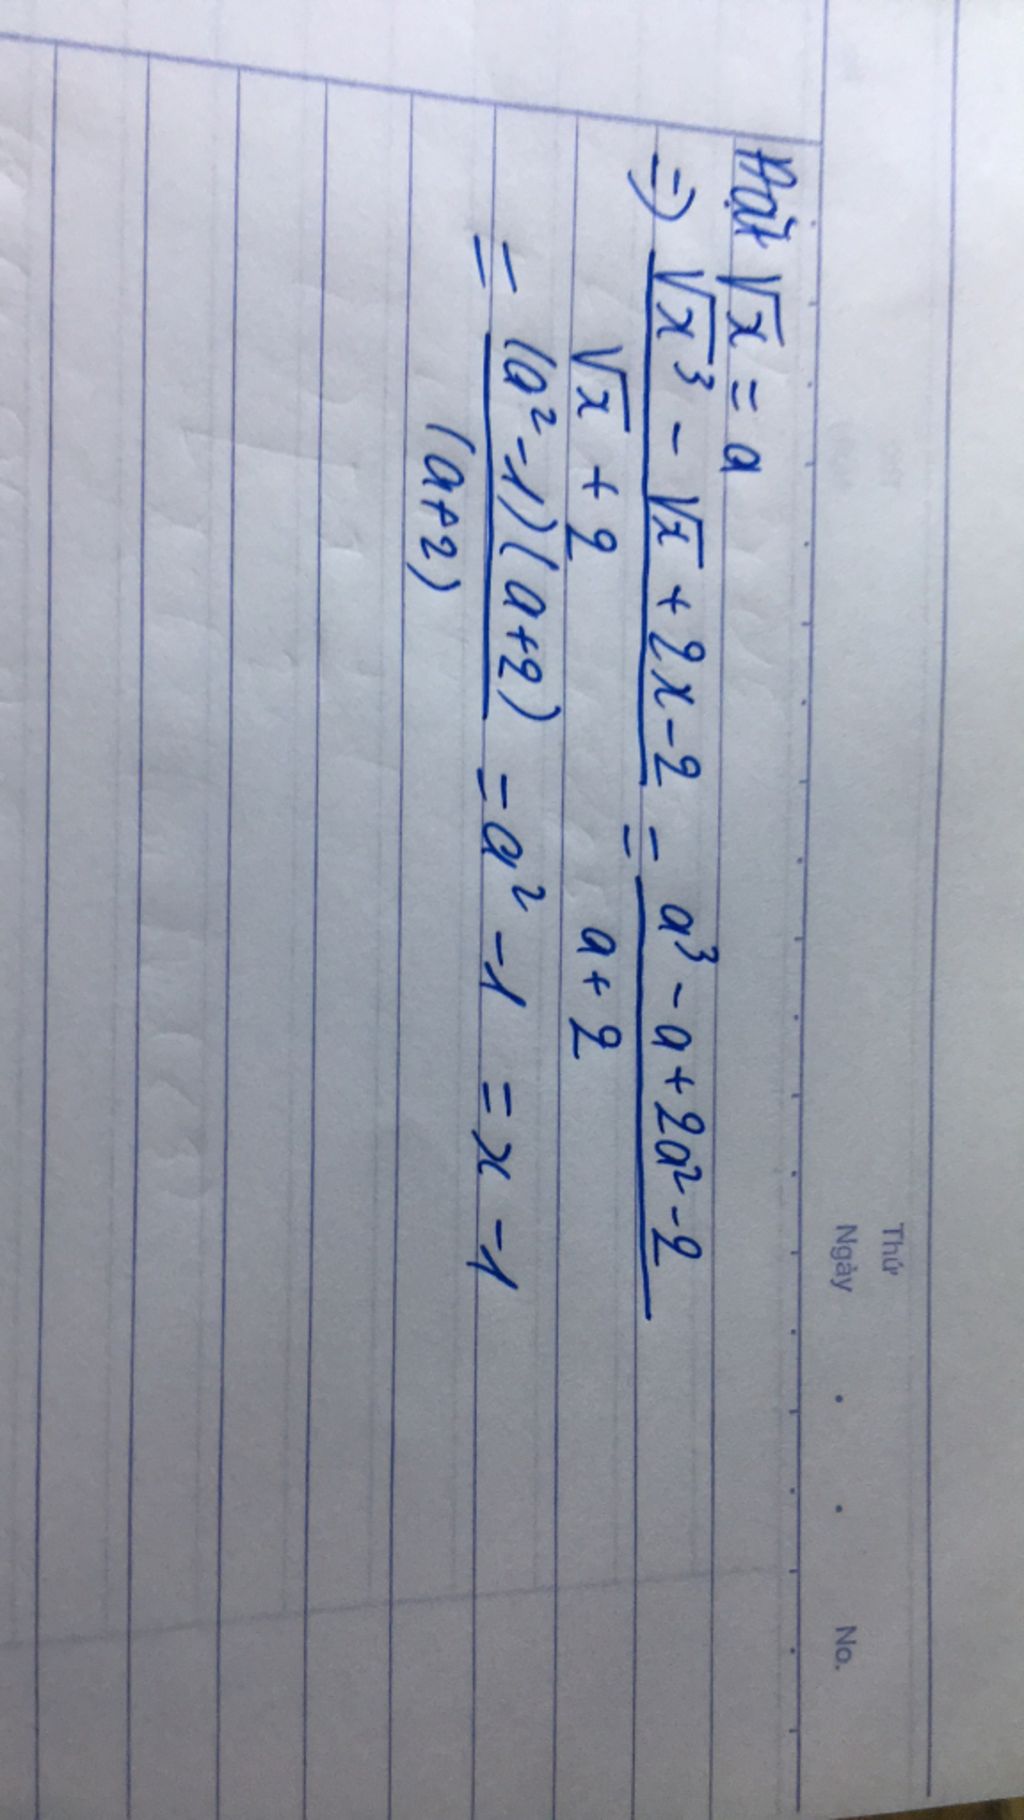 Thứ
Ngày . . No.
Đặt √x = a
=> √x³ - √x + 2x - 2 = a³ - a + 2a² - 2
√x + 2 a + 2
= (a² - 1)(a + 2) = a² - 1 = x - 1
(a + 2)